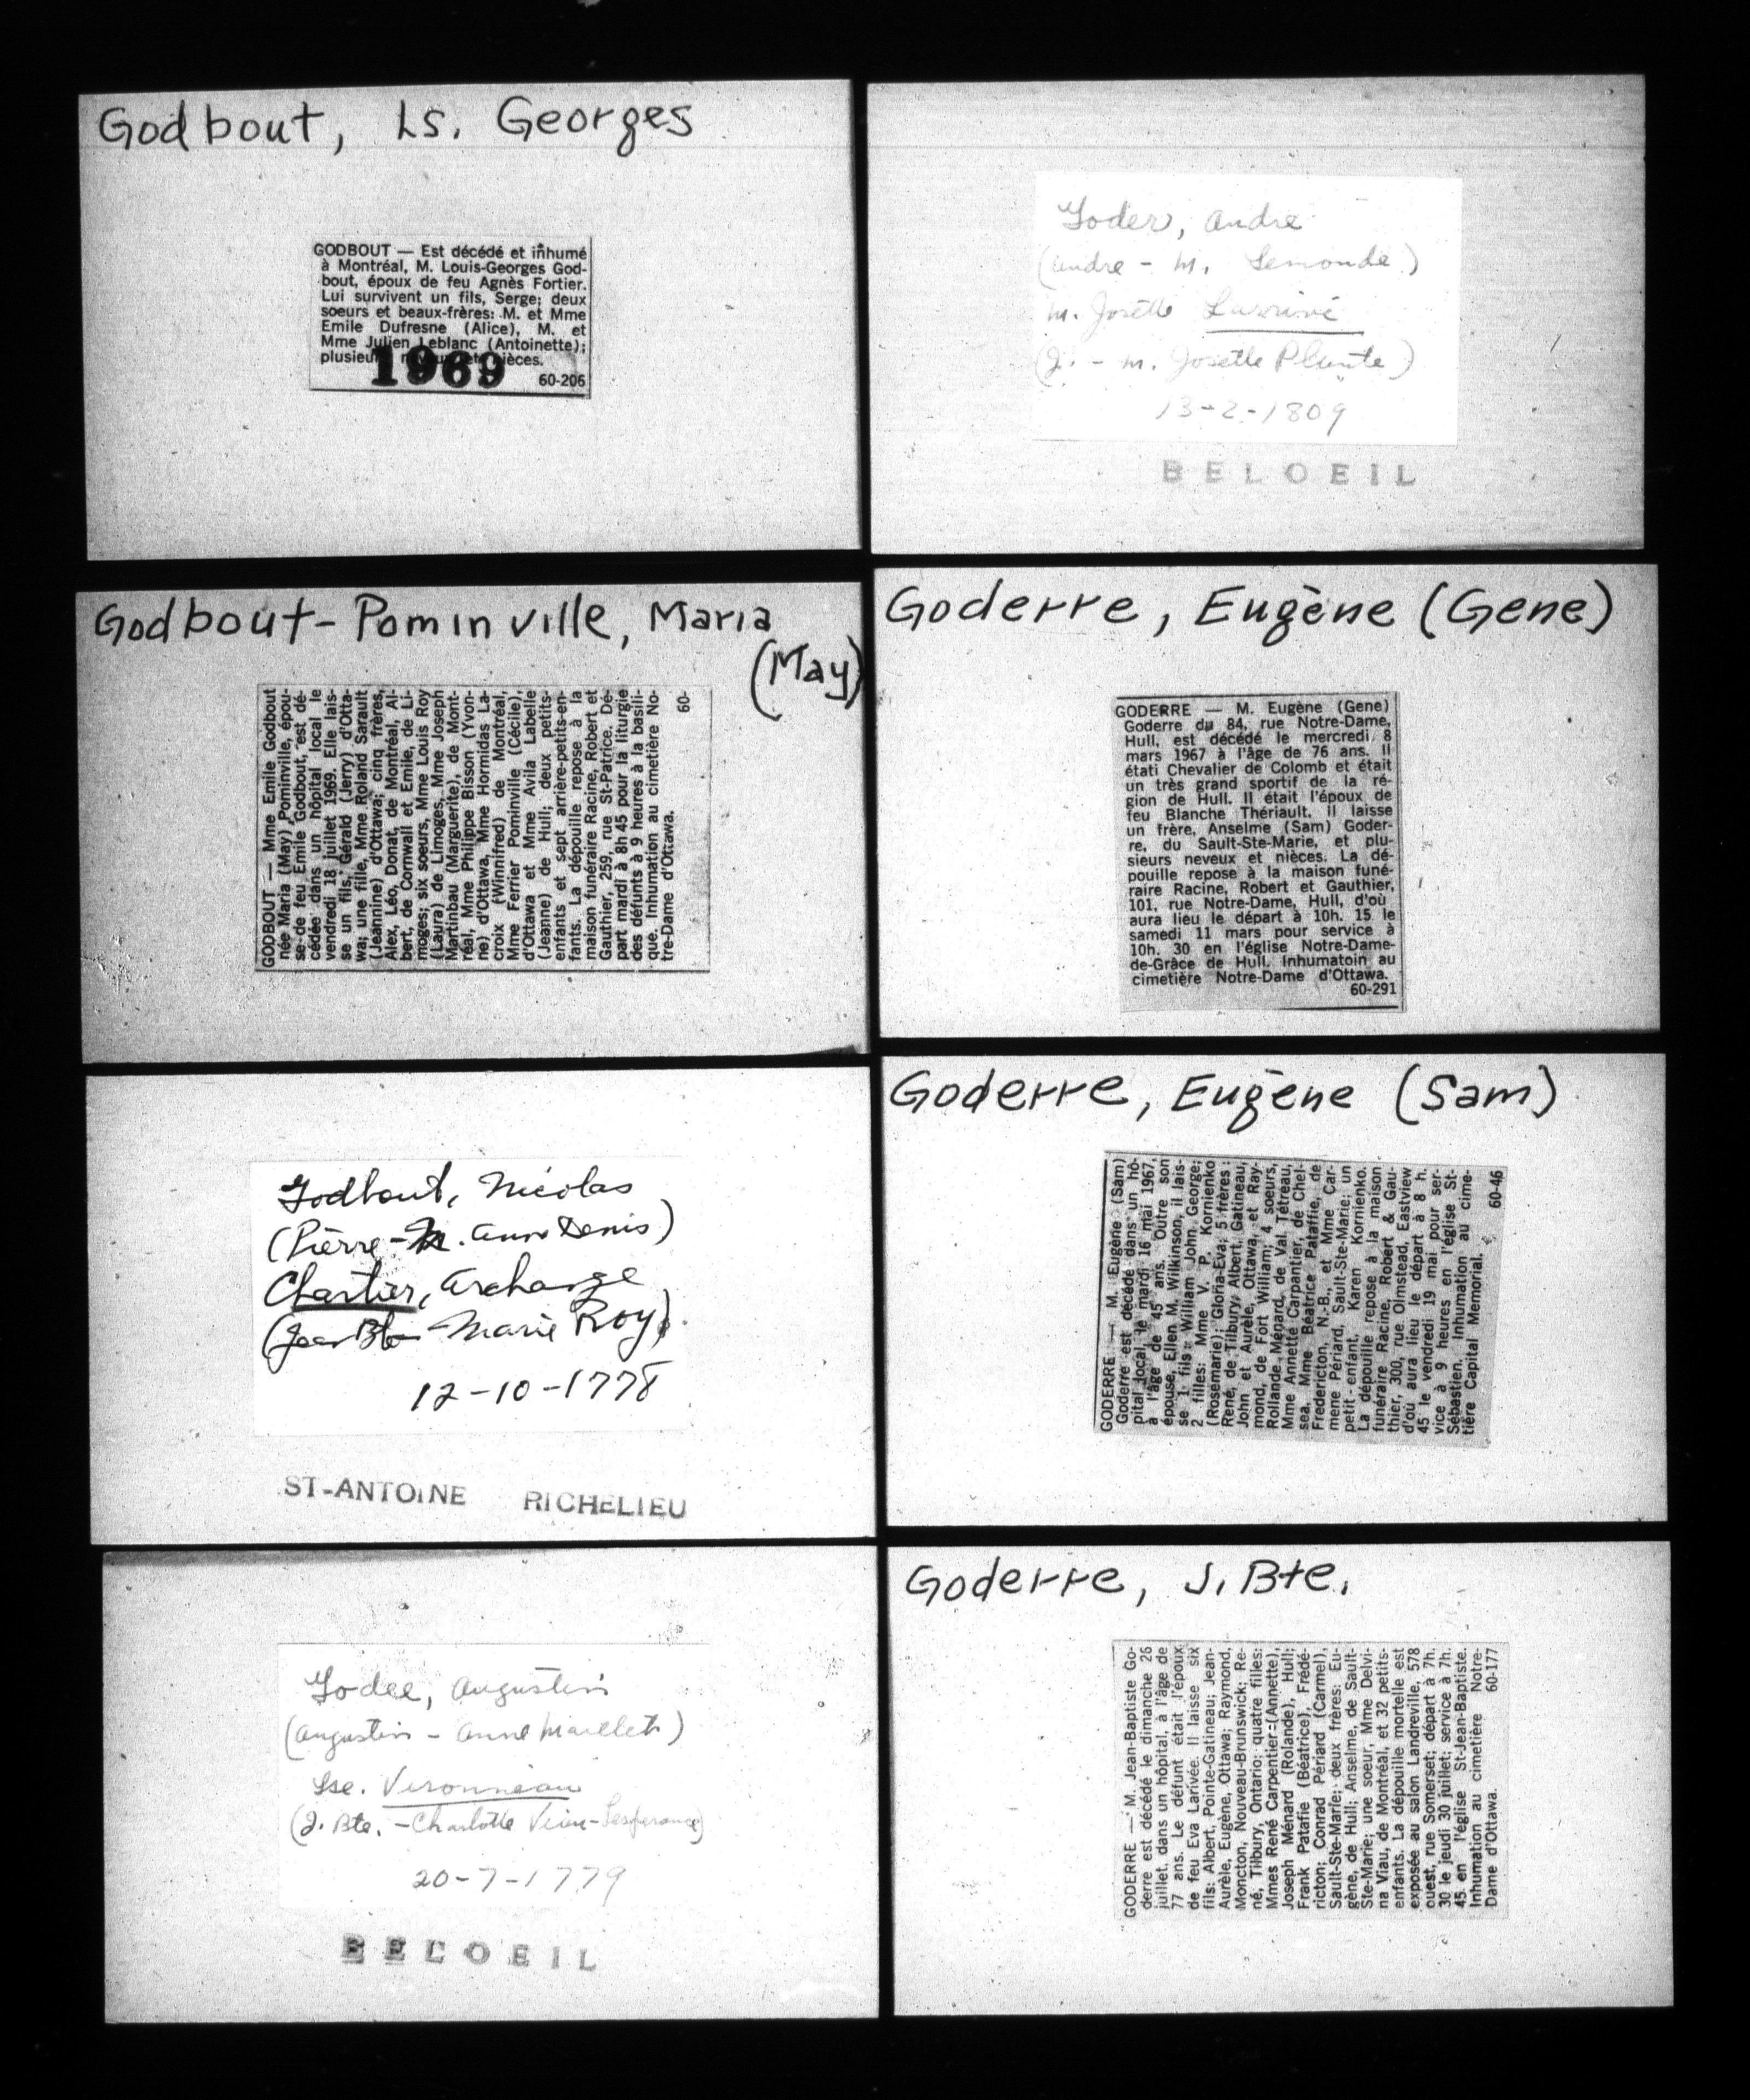 Godbout, Ls. Georges
GODBOUT — Est décédé et inhumé
à Montréal, M. Louis-Georges God-
bout, époux de feu Agnès Fortier.
Lui survivent un fils, Serge; deux
soeurs et beaux-frères: M. et Mme
Emile Dufresne (Alice), M. et
Mme Julien Leblanc (Antoinette);
plusieurs neveux et nièces.
1969
60-206
Godbout-Pominville, Maria
(May)
GODBOUT — Mme Emile Godbout
née Maria (May) Pominville, épou-
se de feu Emile Godbout, est dé-
cédée dans un hôpital local le
vendredi 18 juillet 1969. Elle lais-
se un fils, Gérald (Jerry) d'Otta-
wa; une fille, Mme Roland Sarault
(Jeannine) d'Ottawa; cinq frères,
Alex, Léo, Donat, de Montréal, Al-
bert, de Cornwall et Emile, de Li-
moges; six soeurs, Mme Louis Roy
(Laura) de Limoges, Mme Joseph
Martinbau (Marguerite), de Mont-
réal, Mme Philippe Bisson (Yvon-
ne) d'Ottawa, Mme Hormidas La-
croix (Winnifred) de Montréal,
Mme Ferrier Pominville (Cécile),
d'Ottawa et Mme Avila Labelle
(Jeanne) de Hull; deux petits-
enfants et sept arrière-petits-en-
fants. La dépouille repose à la
maison funéraire Racine, Robert et
Gauthier, 259, rue St-Patrice. Dé-
part mardi à 8h 45 pour la liturgie
des défunts à 9 heures à la basili-
que. Inhumation au cimetière No-
tre-Dame d'Ottawa.
60-
Godbout, Nicolas
(Pierre - M. Ann Denis)
Chartier, Archange
(Jean Bte - Marie Roy)
12-10-1778
ST-ANTOINE RICHELIEU
Godee, Augustin
(Augustin - Anne Maillet)
Lse. Veronneau
(J. Bte. - Charlotte Vien-Lesperance)
20-7-1779
BELOEIL
Goder, Andre
(Andre - M. Lemonde)
M. Josette Larrivé
(J. - M. Josette Plante)
13-2-1809
BELOEIL
Goderre, Eugène (Gene)
GODERRE — M. Eugène (Gene)
Goderre du 84, rue Notre-Dame,
Hull, est décédé le mercredi 8
mars 1967 à l'âge de 76 ans. Il
étati Chevalier de Colomb et était
un très grand sportif de la ré-
gion de Hull. Il était l'époux de
feu Blanche Thériault. Il laisse
un frère, Anselme (Sam) Goder-
re, du Sault-Ste-Marie, et plu-
sieurs neveux et nièces. La dé-
pouille repose à la maison funé-
raire Racine, Robert et Gauthier,
101, rue Notre-Dame, Hull, d'où
aura lieu le départ à 10h. 15 le
samedi 11 mars pour service à
10h. 30 en l'église Notre-Dame-
de-Grâce de Hull. Inhumatoin au
cimetière Notre-Dame d'Ottawa.
60-291
Goderre, Eugène (Sam)
GODERRE — M. Eugène (Sam)
Goderre est décédé dans un hô-
pital local le mardi 16 mai 1967,
à l'âge de 45 ans. Outre son
épouse, Ellen M. Wilkinson, il lais-
se 1 fils: William John George;
2 filles: Mme V. P. Kornienko
(Rosemarie); Gloria-Eva; 5 frères:
René, de Tilbury, Albert, Gatineau,
John et Aurèle, Ottawa, et Ray-
mond, de Fort William; 4 soeurs,
Rollande Ménard, de Val Tétreau,
Mme Annette Carpantier, de Chel-
sea, Mme Béatrice Pataffie, de
Fredericton, N.-B., et Mme Car-
mene Périard, Sault-Ste-Marie; un
petit-enfant, Karen Kornienko.
La dépouille repose à la maison
funéraire Racine, Robert & Gau-
thier, 300, rue Olmstead, Eastview
d'où aura lieu le départ à 8 h.
45 le vendredi 19 mai pour ser-
vice à 9 heures en l'église St-
Sébastien. Inhumation au cime-
tière Capital Memorial.
60-46
Goderre, J. Bte.
GODERRE — M. Jean-Baptiste Go-
derre est décédé le dimanche 26
juillet, dans un hôpital, à l'âge de
77 ans. Le défunt était l'époux
de feu Eva Larivée. Il laisse six
fils: Albert, Pointe-Gatineau; Jean-
Aurèle, Eugène, Ottawa; Raymond,
Moncton, Nouveau-Brunswick; Re-
né, Tilbury, Ontario; quatre filles:
Mmes René Carpentier (Annette),
Joseph Ménard (Rolande), Hull;
Frank Patafie (Béatrice), Frédé-
ricton; Conrad Périard (Carmel),
Sault-Ste-Marie; deux frères: Eu-
gène, de Hull; Anselme, de Sault-
Ste-Marie; une soeur, Mme Delvi-
na Viau, de Montréal, et 32 petits-
enfants. La dépouille mortelle est
exposée au salon Landreville, 578
ouest, rue Somerset; départ à 7h.
30 le jeudi 30 juillet; service à 7h.
45 en l'église St-Jean-Baptiste.
Inhumation au cimetière Notre-
Dame d'Ottawa. 60-177